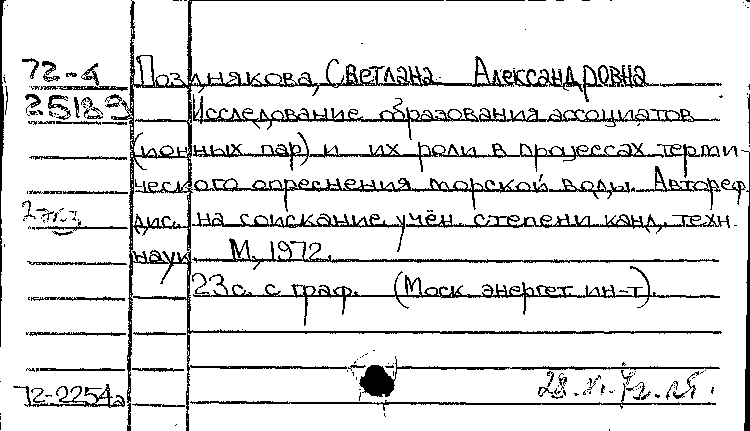 72-4 Позднякова, Светлана Александровна
25189 Исследование образования ассоциатов
(ионных пар) и их роли в процессах терми-
ческого опреснения морской воды. Автореф.
2 экз. дис. на соискание учён. степени канд. техн.
наук. М., 1972.
23 с. с граф. (Моск. энергет. ин-т).
72-2254а 28.XI.72